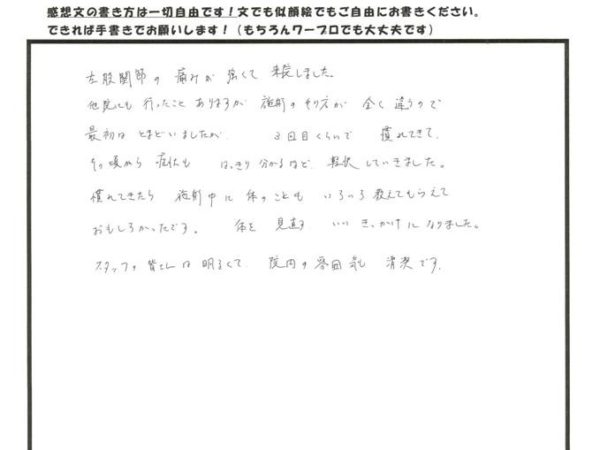 感想文の書き方は一切自由です!文でも似顔絵でもご自由にお書きください。
できれば手書きでお願いします!(もちろんワープロでも大丈夫です)
左股関節の痛みが強くて来院しました。
他院にも行ったことありますが施術のやり方が全く違うので
最初はとまどいましたが、3回目くらいで慣れてきて、
その頃から症状もはっきり分かるほど軽快していきました。
慣れてきたら施術中に体のこともいろいろ教えてもらえて
おもしろかったです。体を見直すいいきっかけになりました。
スタッフの皆さんは明るくて、院内の雰囲気も清潔です。